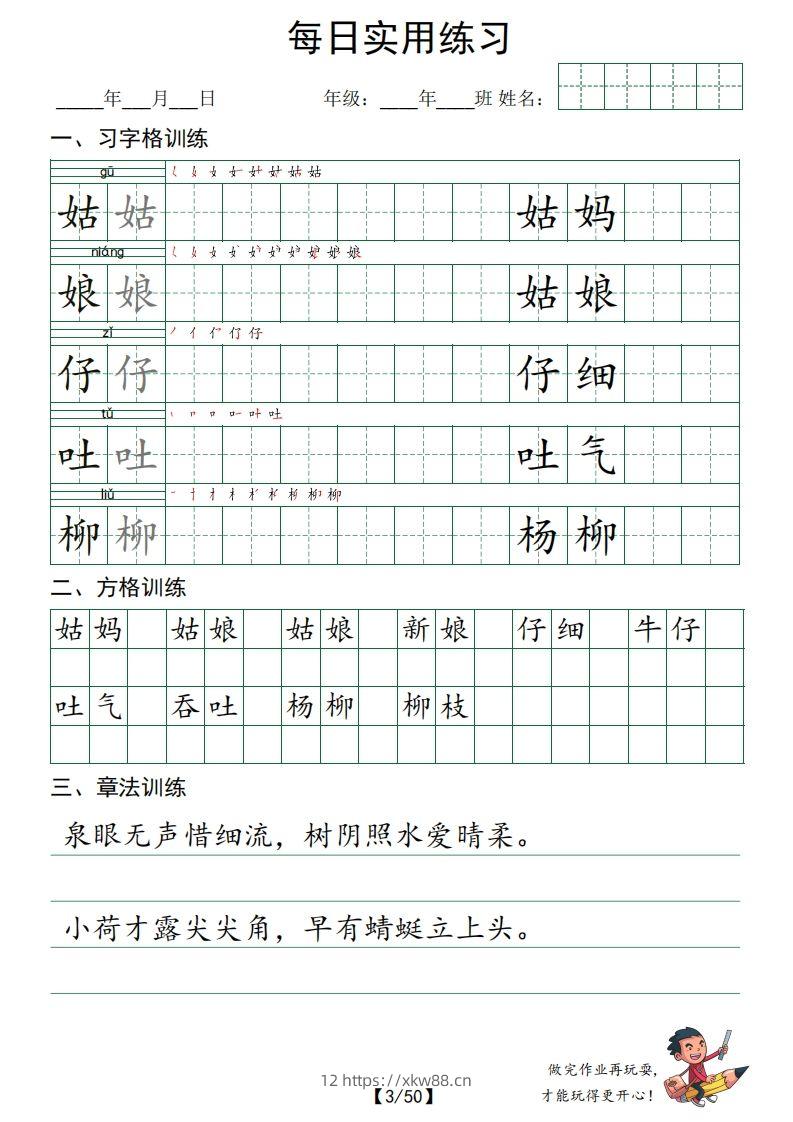 每日实用练习
_____年___月___日 年级：____年____班 姓名：
一、习字格训练
gū
姑 姑 姑 妈
niáng
娘 娘 姑 娘
zǐ
仔 仔 仔 细
tǔ
吐 吐 吐 气
liǔ
柳 柳 杨 柳
二、方格训练
姑 妈 姑 娘 姑 娘 新 娘 仔 细 牛 仔
吐 气 吞 吐 杨 柳 柳 枝
三、章法训练
泉眼无声惜细流，树阴照水爱晴柔。
小荷才露尖尖角，早有蜻蜓立上头。
做完作业再玩耍，
才能玩得更开心！
12 https://xkw88.cn
【3/50】